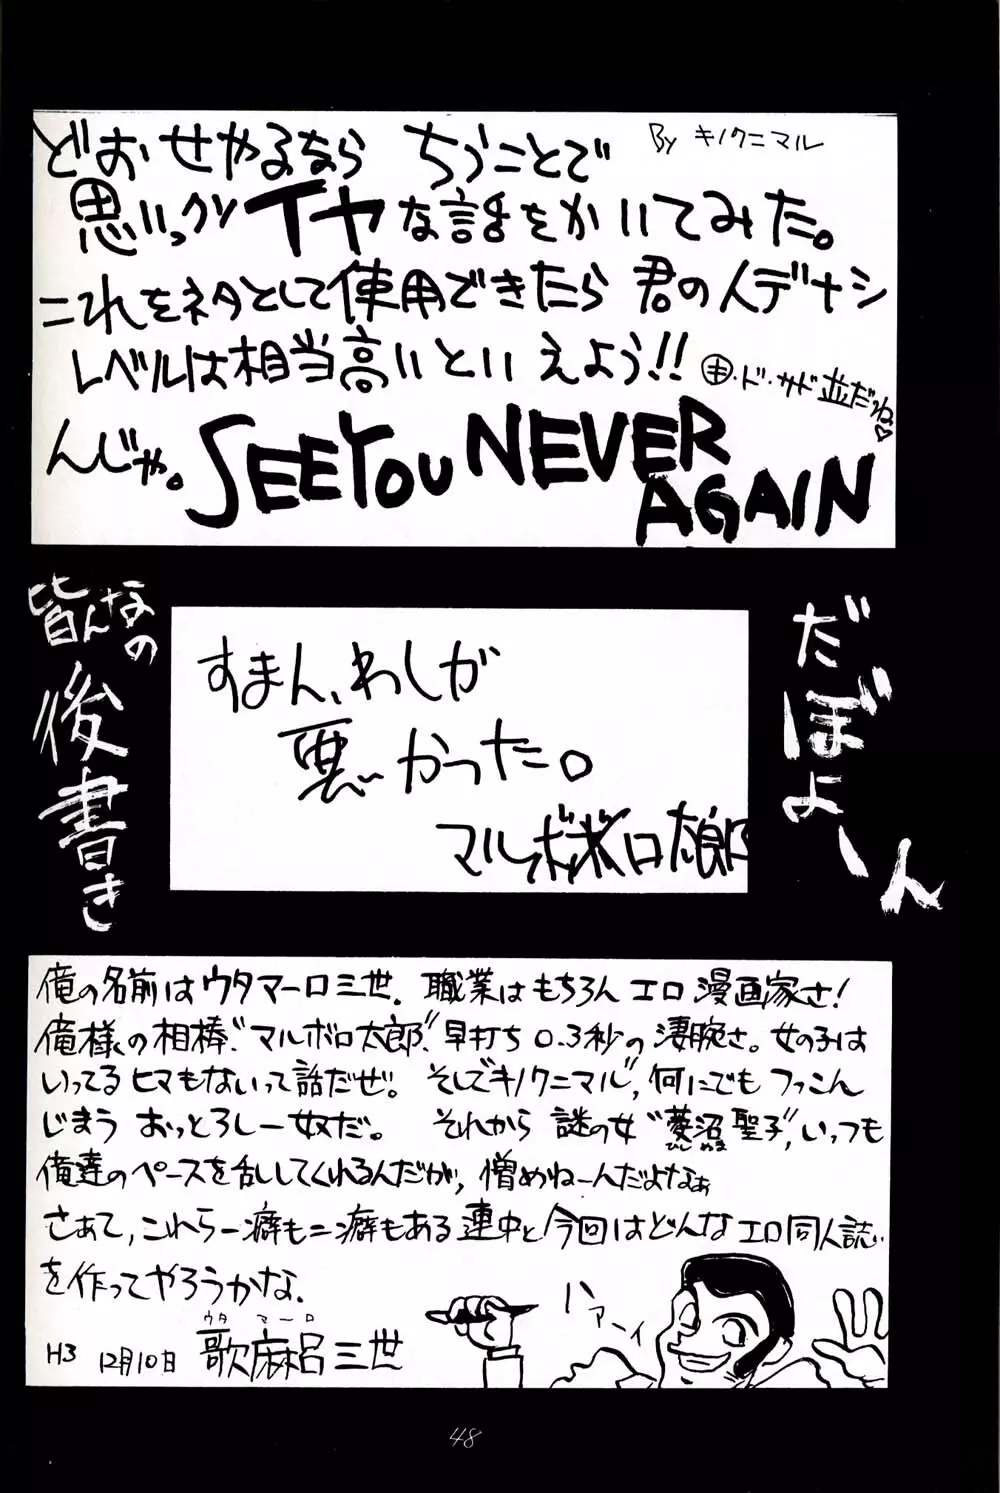 どおせやるなら ちうことで
By キノクニマル
思いっクソイヤな話をかいてみた。
これをネタとして使用できたら 君の人デナシ
レベルは相当高いといえよう!!
・ド・サド並だね♡
んじゃ。SEE YOU NEVER
AGAIN
皆んなの
後書き
だぼよーん
すまん、わしが
悪かった。
マルボロ太郎
俺の名前はウタマーロ三世. 職業はもちろん エロ漫画家さ!
俺様の相棒“マルボロ太郎”早打ち 0.3秒の凄腕さ。女の子は
いってるヒマもないって話だぜ。 そしで“キノクニマル”, 何にでも つっこん
じまう おっとろしー奴だ。 それから 謎の女“菱沼聖子”, いっつも
ひしぬま
俺達のペースを乱してくれるんだが, 憎めねーんだよなぁ
さあて, これら一癖も二癖もある連中と 今回はどんなエロ同人誌
を作ってやろうかな.
ハァーイ
ウタマーロ
H3 12月10日 歌麻呂三世
48